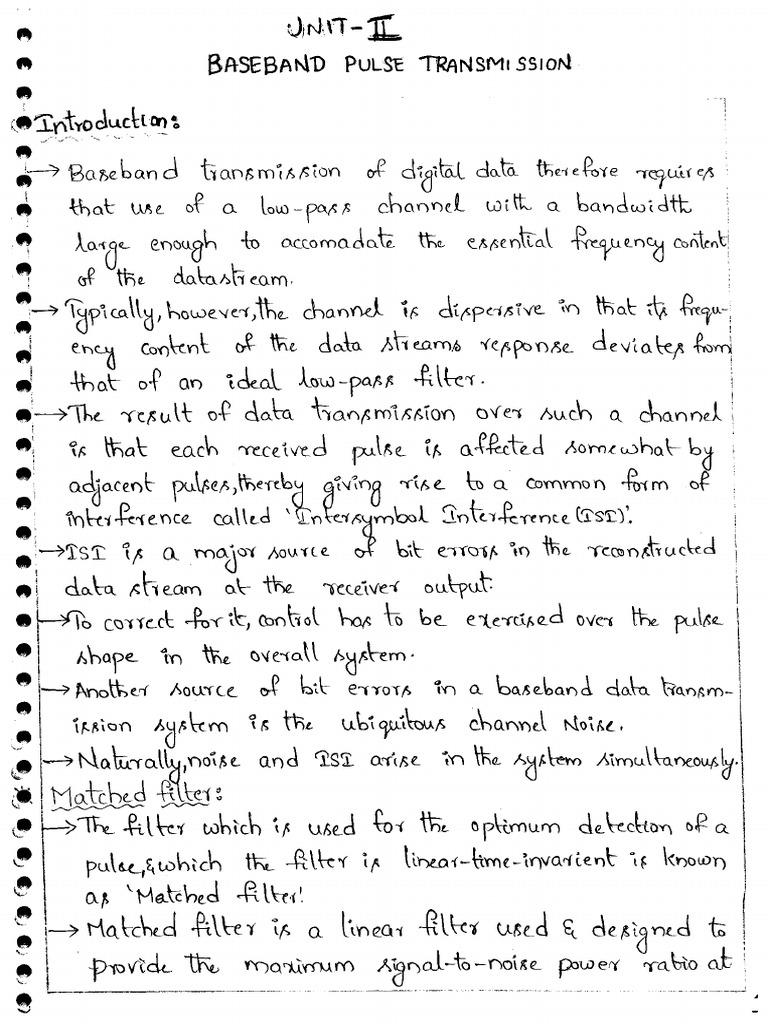 UNIT-II
BASEBAND PULSE TRANSMISSION
Introduction:
→ Baseband transmission of digital data therefore requires
that use of a low-pass channel with a bandwidth
large enough to accomadate the essential frequency content
of the datastream.
→ Typically, however, the channel is dispersive in that its frequ-
ency content of the data streams response deviates from
that of an ideal low-pass filter.
→ The result of data transmission over such a channel
is that each received pulse is affected somewhat by
adjacent pulses, thereby giving rise to a common form of
interference called 'Intersymbol Interference (ISI)'.
→ ISI is a major source of bit errors in the reconstructed
data stream at the receiver output.
→ To correct for it, control has to be exercised over the pulse
shape in the overall system.
→ Another source of bit errors in a baseband data transm-
ission system is the ubiquitous channel Noise.
→ Naturally, noise and ISI arise in the system simultaneously.
Matched filter:
→ The filter which is used for the optimum detection of a
pulse, & which the filter is linear-time-invarient is known
as 'Matched filter'.
→ Matched filter is a linear filter used & designed to
provide the maximum signal-to-noise power ratio at